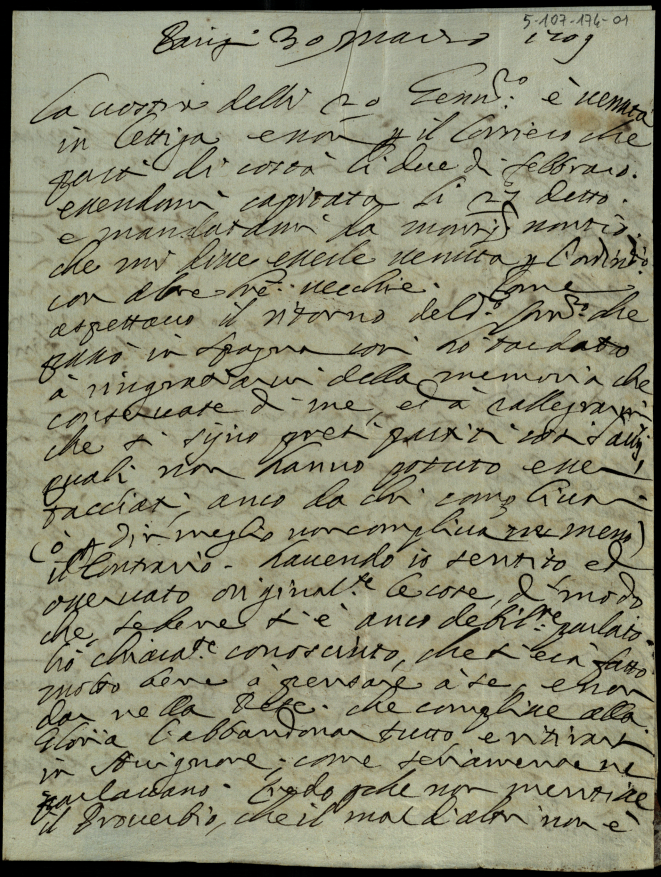 5-107-174-01
Parigi 30 Marzo 1709
La vostra delli 20 Genn.ro è venuta
in lettiga e non p il Corriero che
partì di costà li due di febbraio.
essendomi capitata li 27 detto.
e mandatami da
che mi disse esserle venuta p l'ordin.o
con altre vecchie. Come
aspettavo il ritorno del d.o che
passò in Spagna così hò tardato
à ringratiarvi della memoria che
conservate di me, ed à rallegrarmi
che si sijno presi partiti così
quali non hanno potuto esser
tacciati, anco da chi
(ò p dir meglio non compliva ne meno)
il contrario. havendo io sentito ed
osservato original.te le cose, di modo
che, sebene si è anco debil.te parlato
hò chiara.te conosciuto, che si era fatto
molto bene à pensare à se, e non
dar nella Rete. che complisse alla
gloria l'abbandonar tutto e ritirarsi
in Avignone, come
parlavano. Credo p che non mentisse
il Proverbio, che il mal d'altri non è